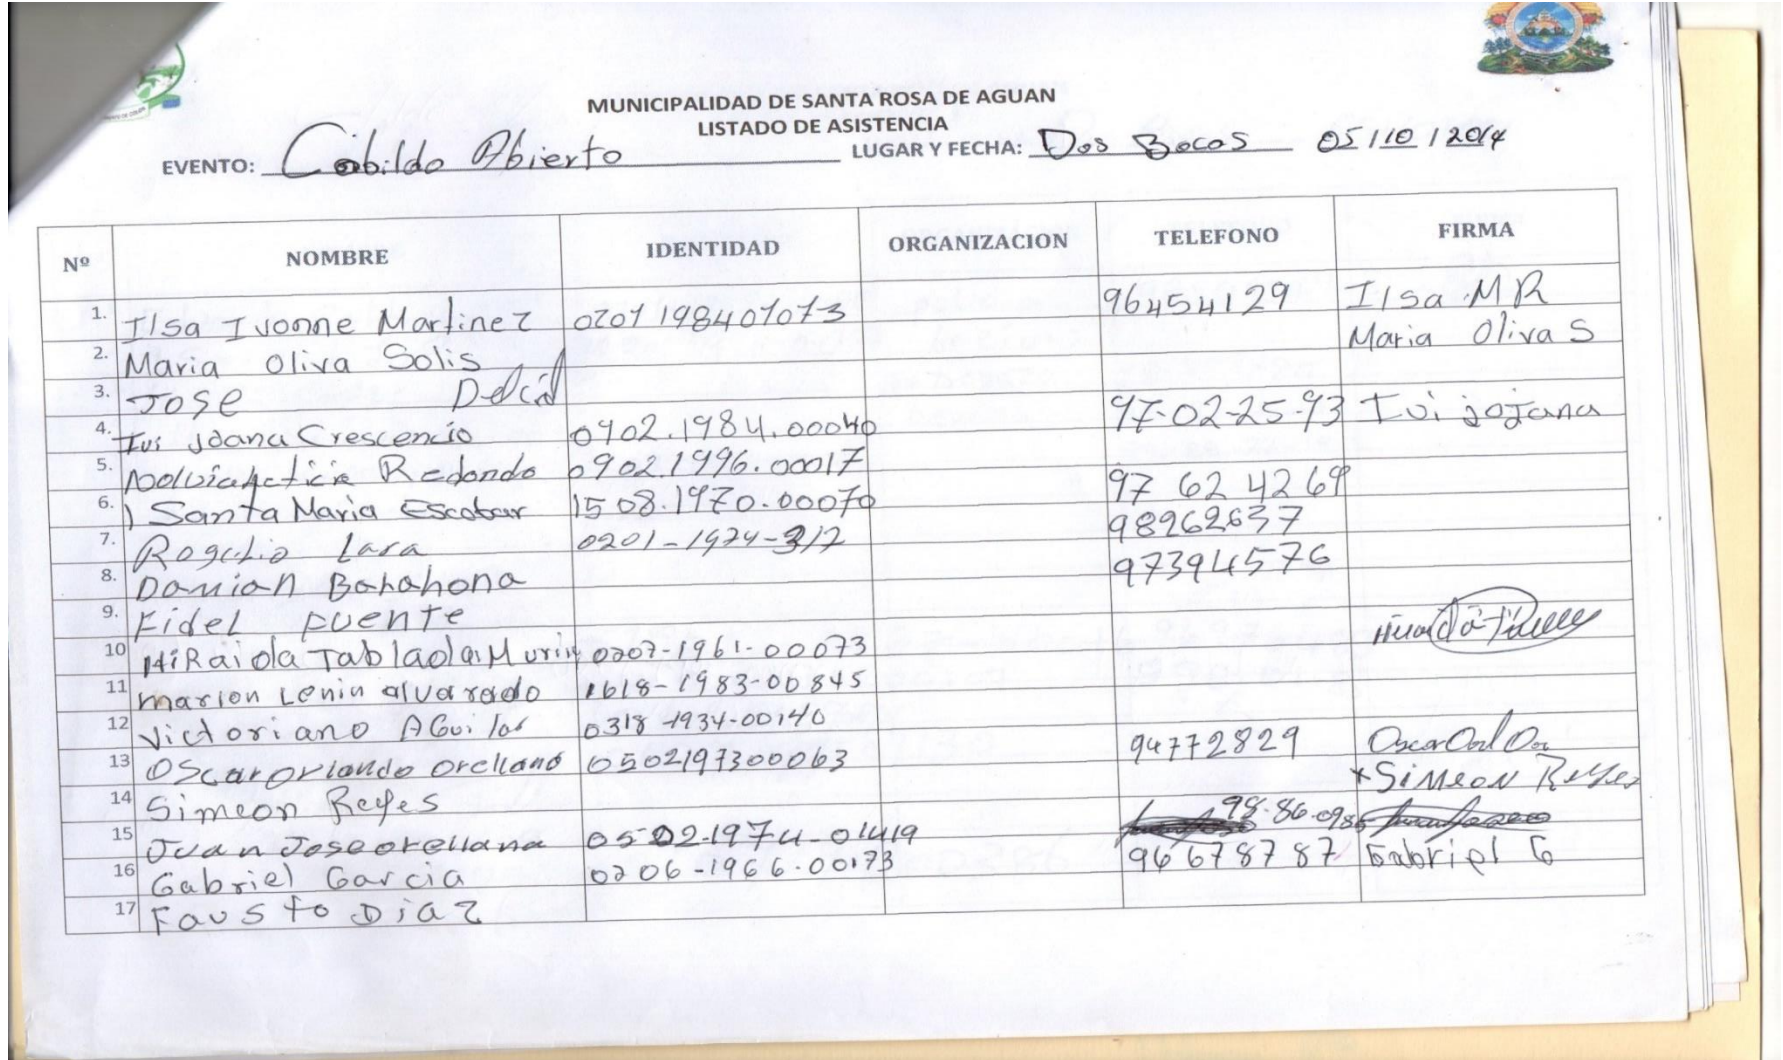 MUNICIPALIDAD DE SANTA ROSA DE AGUAN
LISTADO DE ASISTENCIA
EVENTO: Cabildo Abierto LUGAR Y FECHA: Dos Bocas 05/10/2014
Nº NOMBRE IDENTIDAD ORGANIZACION TELEFONO FIRMA
1. Ilsa Ivonne Martinez 0201198401073 96454129 Ilsa MR
2. Maria Oliva Solis Maria Oliva S
3. Jose Delcid
4. Ivi Joana Crescencio 0902.1984.00040 97-02-25-93 Ivi jojana
5. Redondo 0902.1996.00017
6. Santa Maria Escobar 1508.1970.00070 97 62 42 69
7. Rogelio Lara 0201-1974-312 98962637
8. Damian Barahona 97394576
9. Fidel Puente
10 HiRaida Tablada Murin 0207-1961-00073
11 marlon Lenin alvarado 1618-1983-00845
12 Victoriano AGuilar 0318-1934-00140
13 Oscar orlando orellana 0502197300063 94772829 Oscar
14 Simeon Reyes x Simeon Reyes
15 Juan Jose orellana 0502-1974-01419 98-86-098
16 Gabriel Garcia 0206-1966-00173 96678787 Gabriel G
17 Fausto Diaz